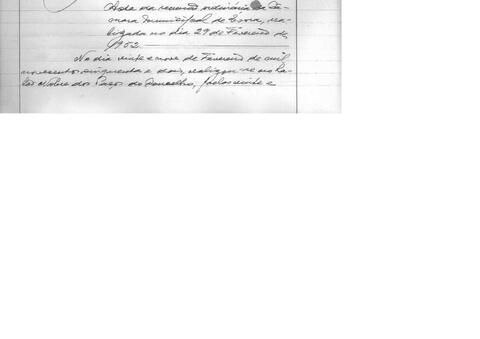 Acta da reunião ordinária da Câ-
mara Municipal de Evora, rea-
lizada no dia 29 de Fevereiro de
1952.
No dia vinte e nove de Fevereiro de mil
novecentos cinquenta e dois, realizou-se no Sa-
lão Nobre dos Paços do Concelho, pelas vinte e